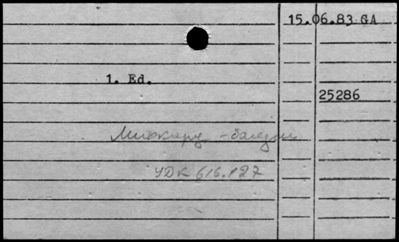 15.06.83 GA
1. Ed.
25286
УДК 616.127